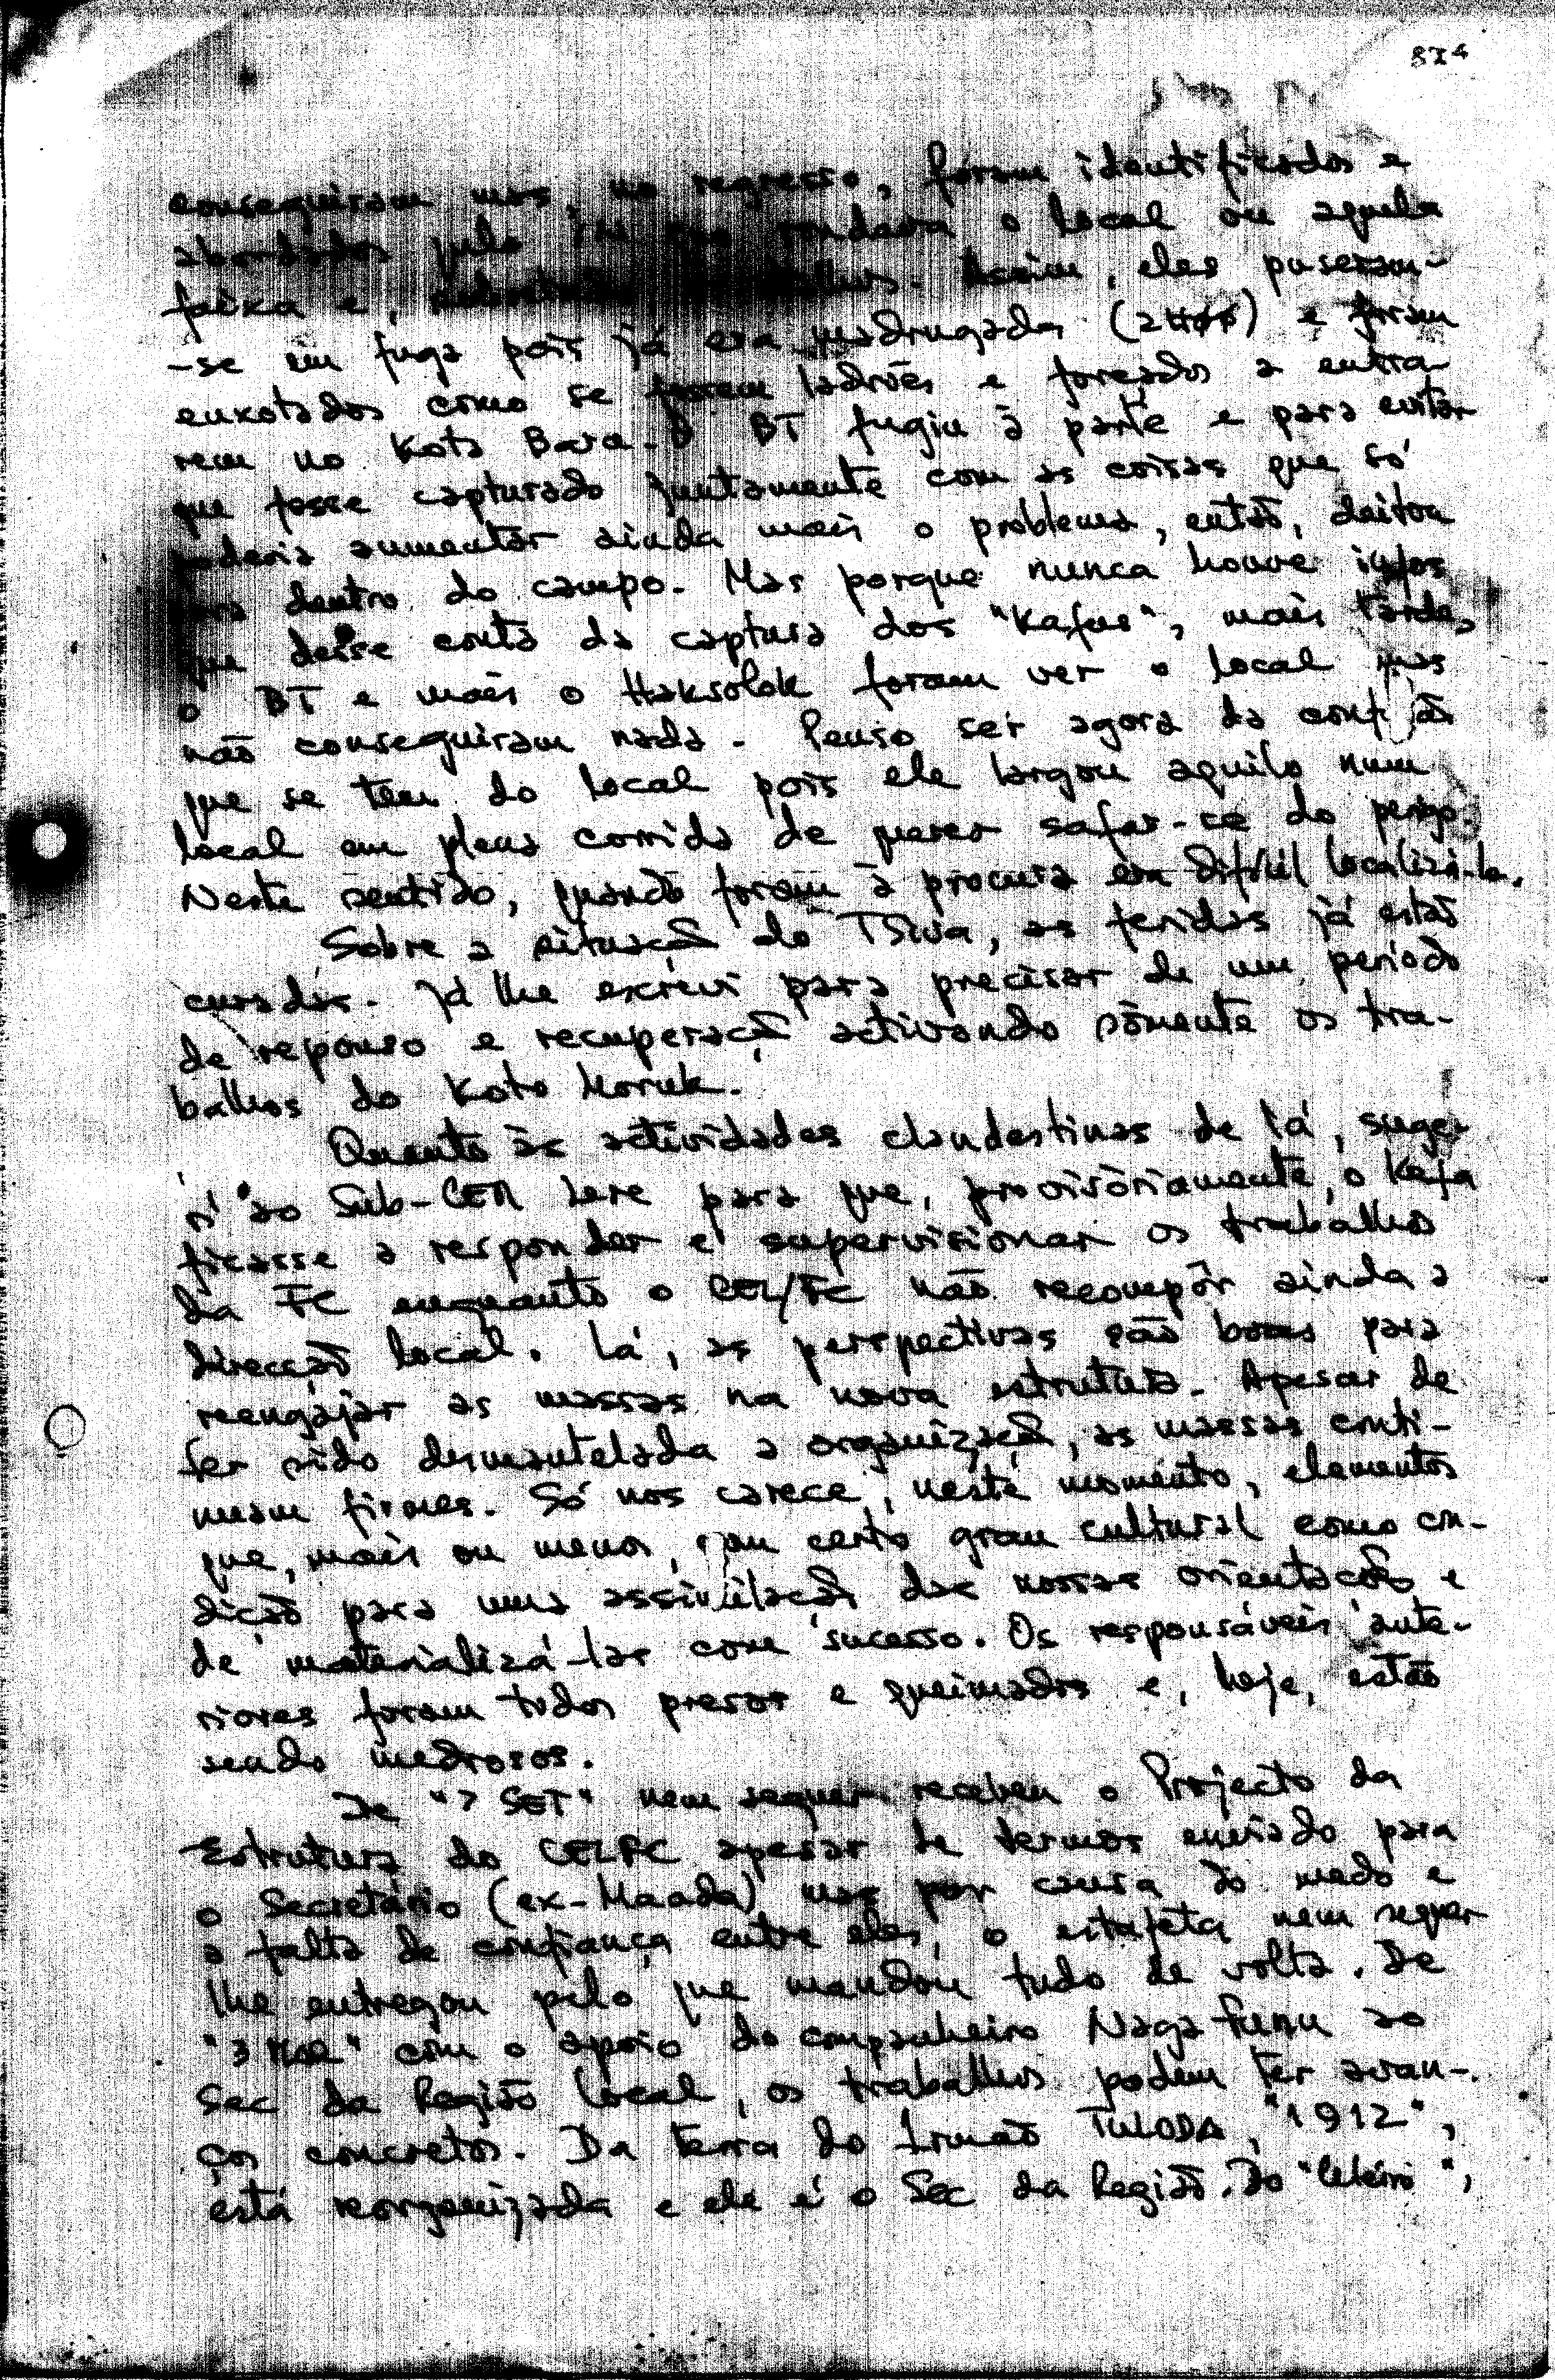 874
conseguiram mas, no regresso, foram identificados e
abordados pelo que rondava o local ou aquela
faixa e, . Assim, eles puseram-
-se em fuga pois já era madrugada (2H00) e foram
enxotados como se fossem ladrões e forçados a entra-
rem no Kota Baru. O BT fugiu à parte e para evitar
que fosse capturado juntamente com as coisas que só
poderia aumentar ainda mais o problema, então, deitou
para dentro do campo. Mas porque nunca houve infos
que desse conta da captura dos "Kafus", mais tarde,
o BT e mais o Haksolok foram ver o local mas
não conseguiram nada. Penso ser agora da conf ão
que se tem do local pois ele largou aquilo num
local em plena corrida de querer safar-se do perigo.
Neste sentido, quando foram à procura era difícil localizá-lo.
Sobre a situação do TSiva, as feridas já estão
curadas. Já lhe escrevi para precisar de um período
de repouso e recuperação activando sòmente os tra-
balhos do Koto Moruk.
Quanto às actividades clandestinas de lá, suge-
ri ao Sub-CER Lere para que, provisòriamente, o Kafa
ficasse a responder e supervisionar os trabalhos
da FC enquanto o CEL/FC não recompôr ainda a
direcção local. Lá, as perspectivas são boas para
reengajar as massas na nova estrutura. Apesar de
ter sido desmantelada a organização, as massas conti-
nuam firmes. Só nos carece, neste momento, elementos
que, mais ou menos, com certo grau cultural como con-
dição para uma assimilação das nossas orientações e
de materializá-las com sucesso. Os responsáveis ante-
riores foram todos presos e queimados e, hoje, estão
sendo medrosos.
De "7 SET" nem sequer recebeu o Projecto da
Estrutura do CELFC apesar de termos enviado para
o Secretário (ex-Maada) mas por causa do medo e
a falta de confiança entre eles, o estafeta nem sequer
lhe entregou pelo que mandou tudo de volta. De
"3 MAR" com o apoio do companheiro Naga Funu ao
Sec da Região local, os trabalhos podem ter avan-
ços concretos. Da terra do Irmão TULODA, "1912",
está reorganizada e ele é o Sec da Região. Do " ",